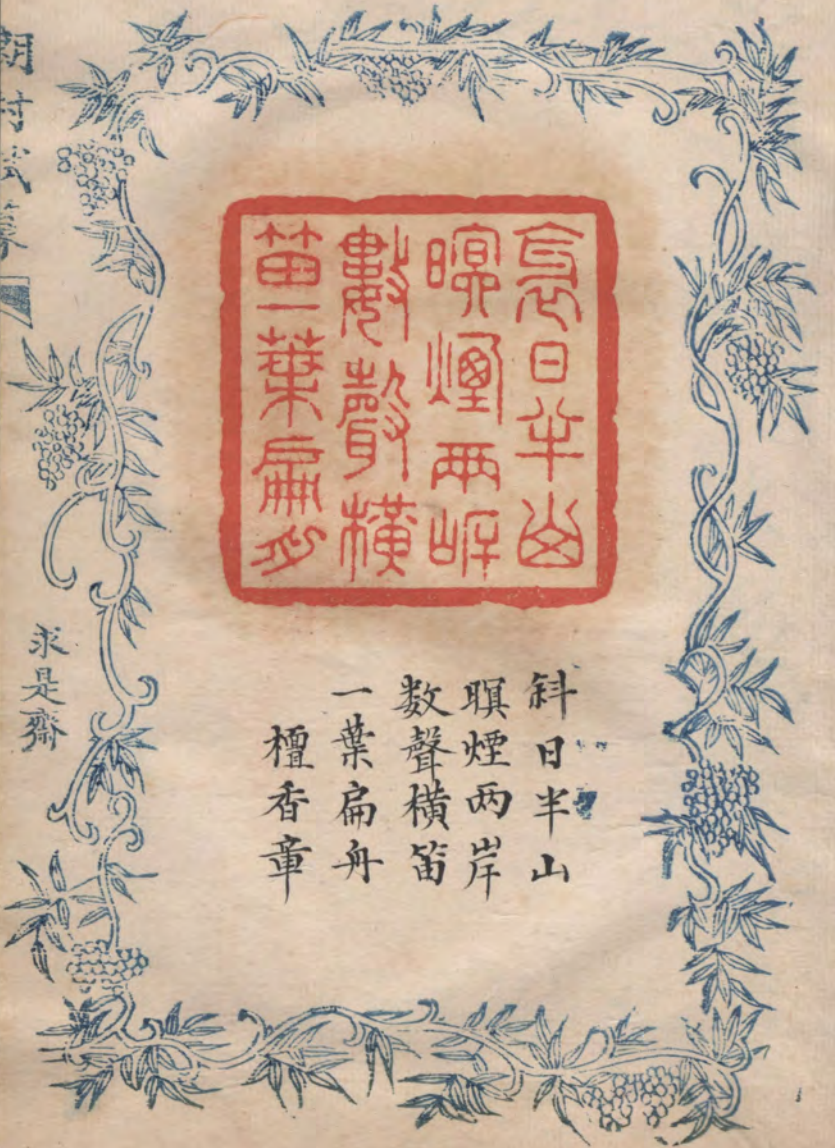 衺日半山
暝煙兩岸
數聲橫
笛一葉扁舟
斜日半山
暝煙两岸
数聲横笛
一葉扁舟
檀香章
求是齋